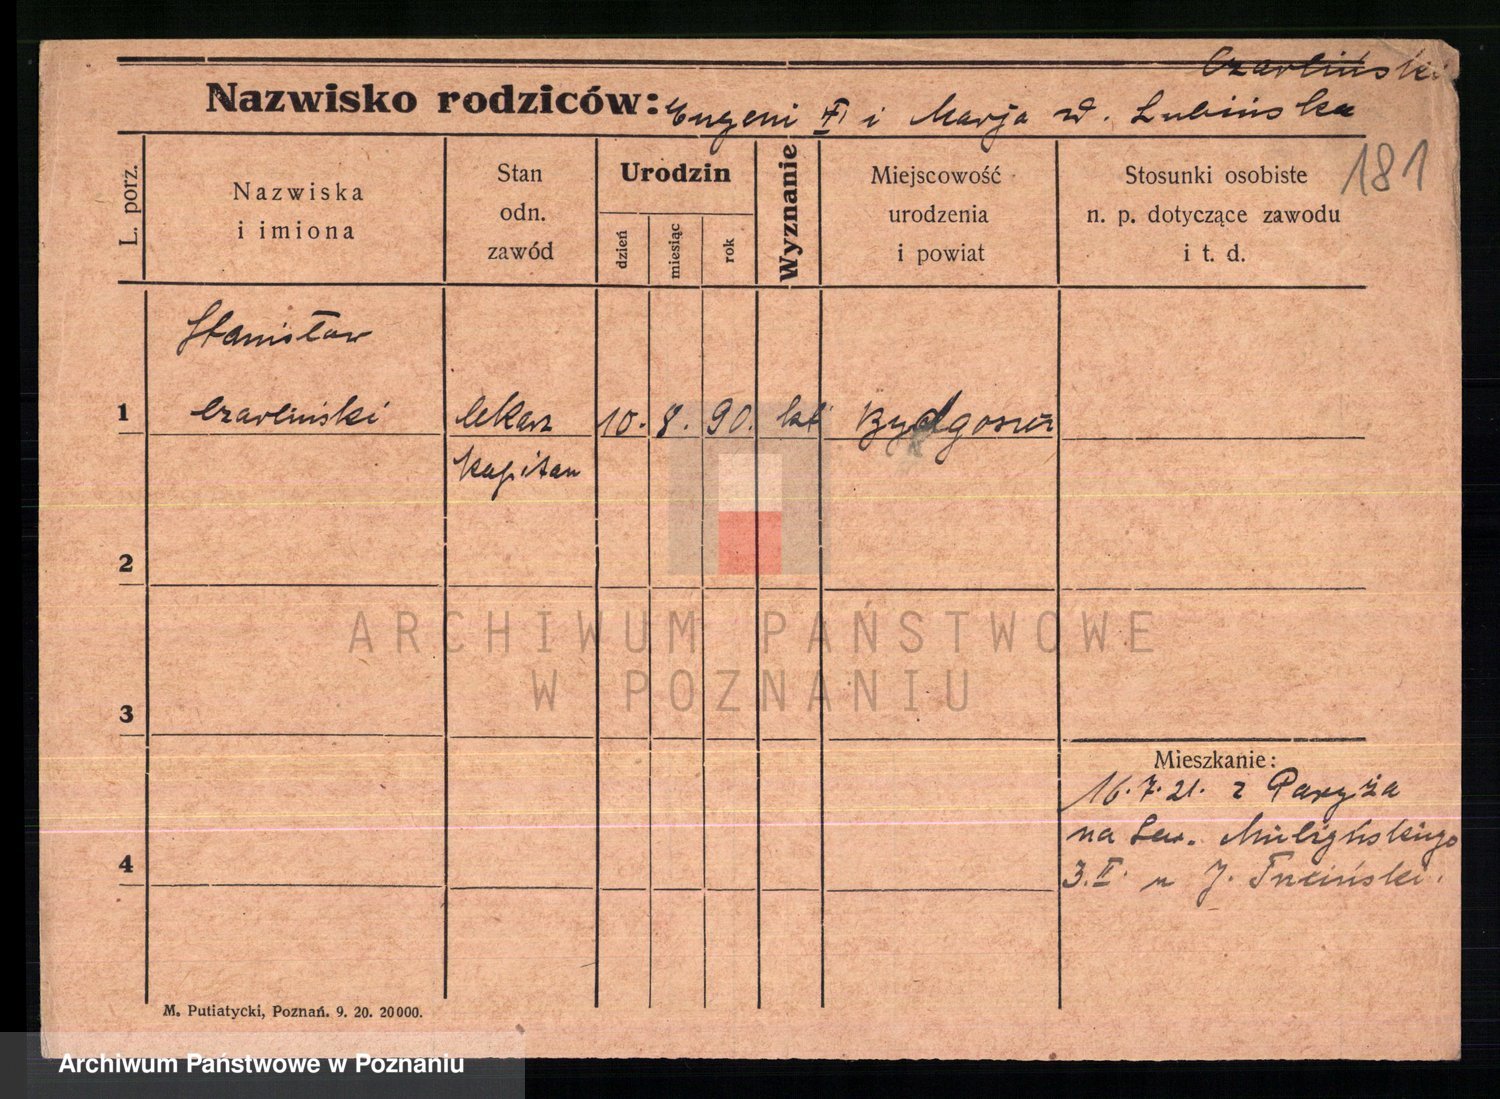 Czarliński
Nazwisko rodziców: Eugeni i Marja d. Lubińska
181
L. porz.
Nazwiska
i imiona
Stan
odn.
zawód
Urodzin
dzień
miesiąc
rok
Wyznanie
Miejscowość
urodzenia
i powiat
Stosunki osobiste
n. p. dotyczące zawodu
i t. d.
Stanisław
1 Czarliński lekarz 10. 8. 90. kat Bydgoszcz
kapitan
2
ARCHIWUM PAŃSTWOWE
W POZNANIU
3
Mieszkanie:
16.7.21. z Paryża
na
4
3.II. u J.
M. Putiatycki, Poznań. 9. 20. 20000.
Archiwum Państwowe w Poznaniu